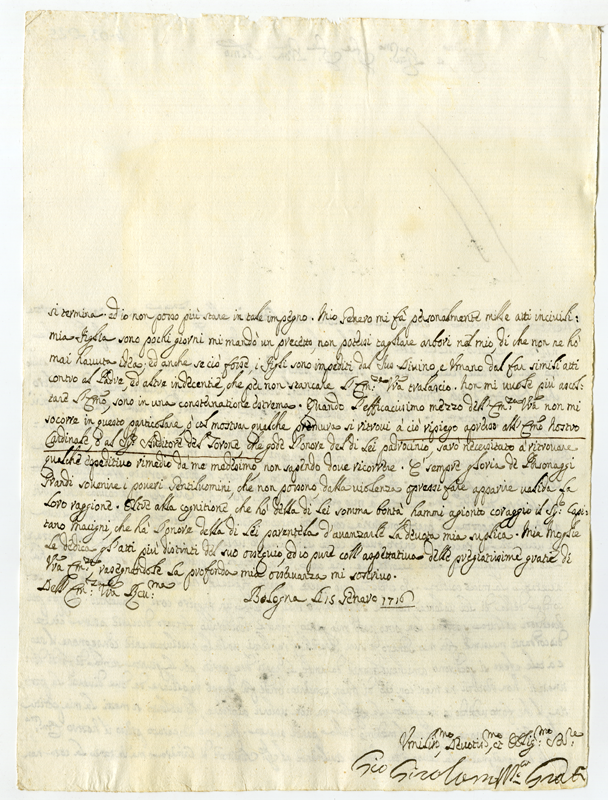 si termina. ed io non posso più stare in tale impegno. Mio Genero mi fà personalmente mille atti incivili:
mia Figlia sono pochi giorni mi mandò un precetto non potessi tagliare arbori nel mio di che non ne hò
mai havuta idea, ed anche se ciò fosse, i Figli sono impediti dal Jus Divino, e Umano dal far simili atti
contro al Padre, ed altre indecenze, che per non stancare l'Em.za Vra tralascio. non mi vuole più ascol:
tare sono in una costernatione estrema. Quando l'efficacissimo mezzo dell'Em.za Vra non mi
socorre in questo particolare, ò col mostrar qualche premura si ritrovi à ciò ripiego apresso all'Emo nostro
Cardinale ò al Sig.r Auditore del Torone che gode l'onore del di Lei padrocinio, sarò necessitato à ritrovare
qualche espeditivo rimedio da me medesimo non sapendo dove ricorrere. È sempre gloria de Personaggi
Grandi sovenire i poveri Gentiluomini, che non possono dalla violenza opressi fare apparire valida la
Loro raggione. Oltre alla cognitione che hò della di Lei somma bontà hammi agionto coraggio il Sig.r Capi:
tano Macigni, che hà l'onore della di Lei parentela d'avanzarle la devota mia suplica. Mia Moglie
Le dedica gl'atti più distinti del suo ossequio, ed io pure coll'aspettativa delle pregiatissime gratie di
Vra Em.za rasegnandole la profonda mia osservanza mi soscrivo.
Dell'Em.za Vra Rev.ma
Bologna Li 15 Genaro 1716
Umiliss.mo Devotis.mo et Oblig.mo S.re
Gio Girolamo Grati